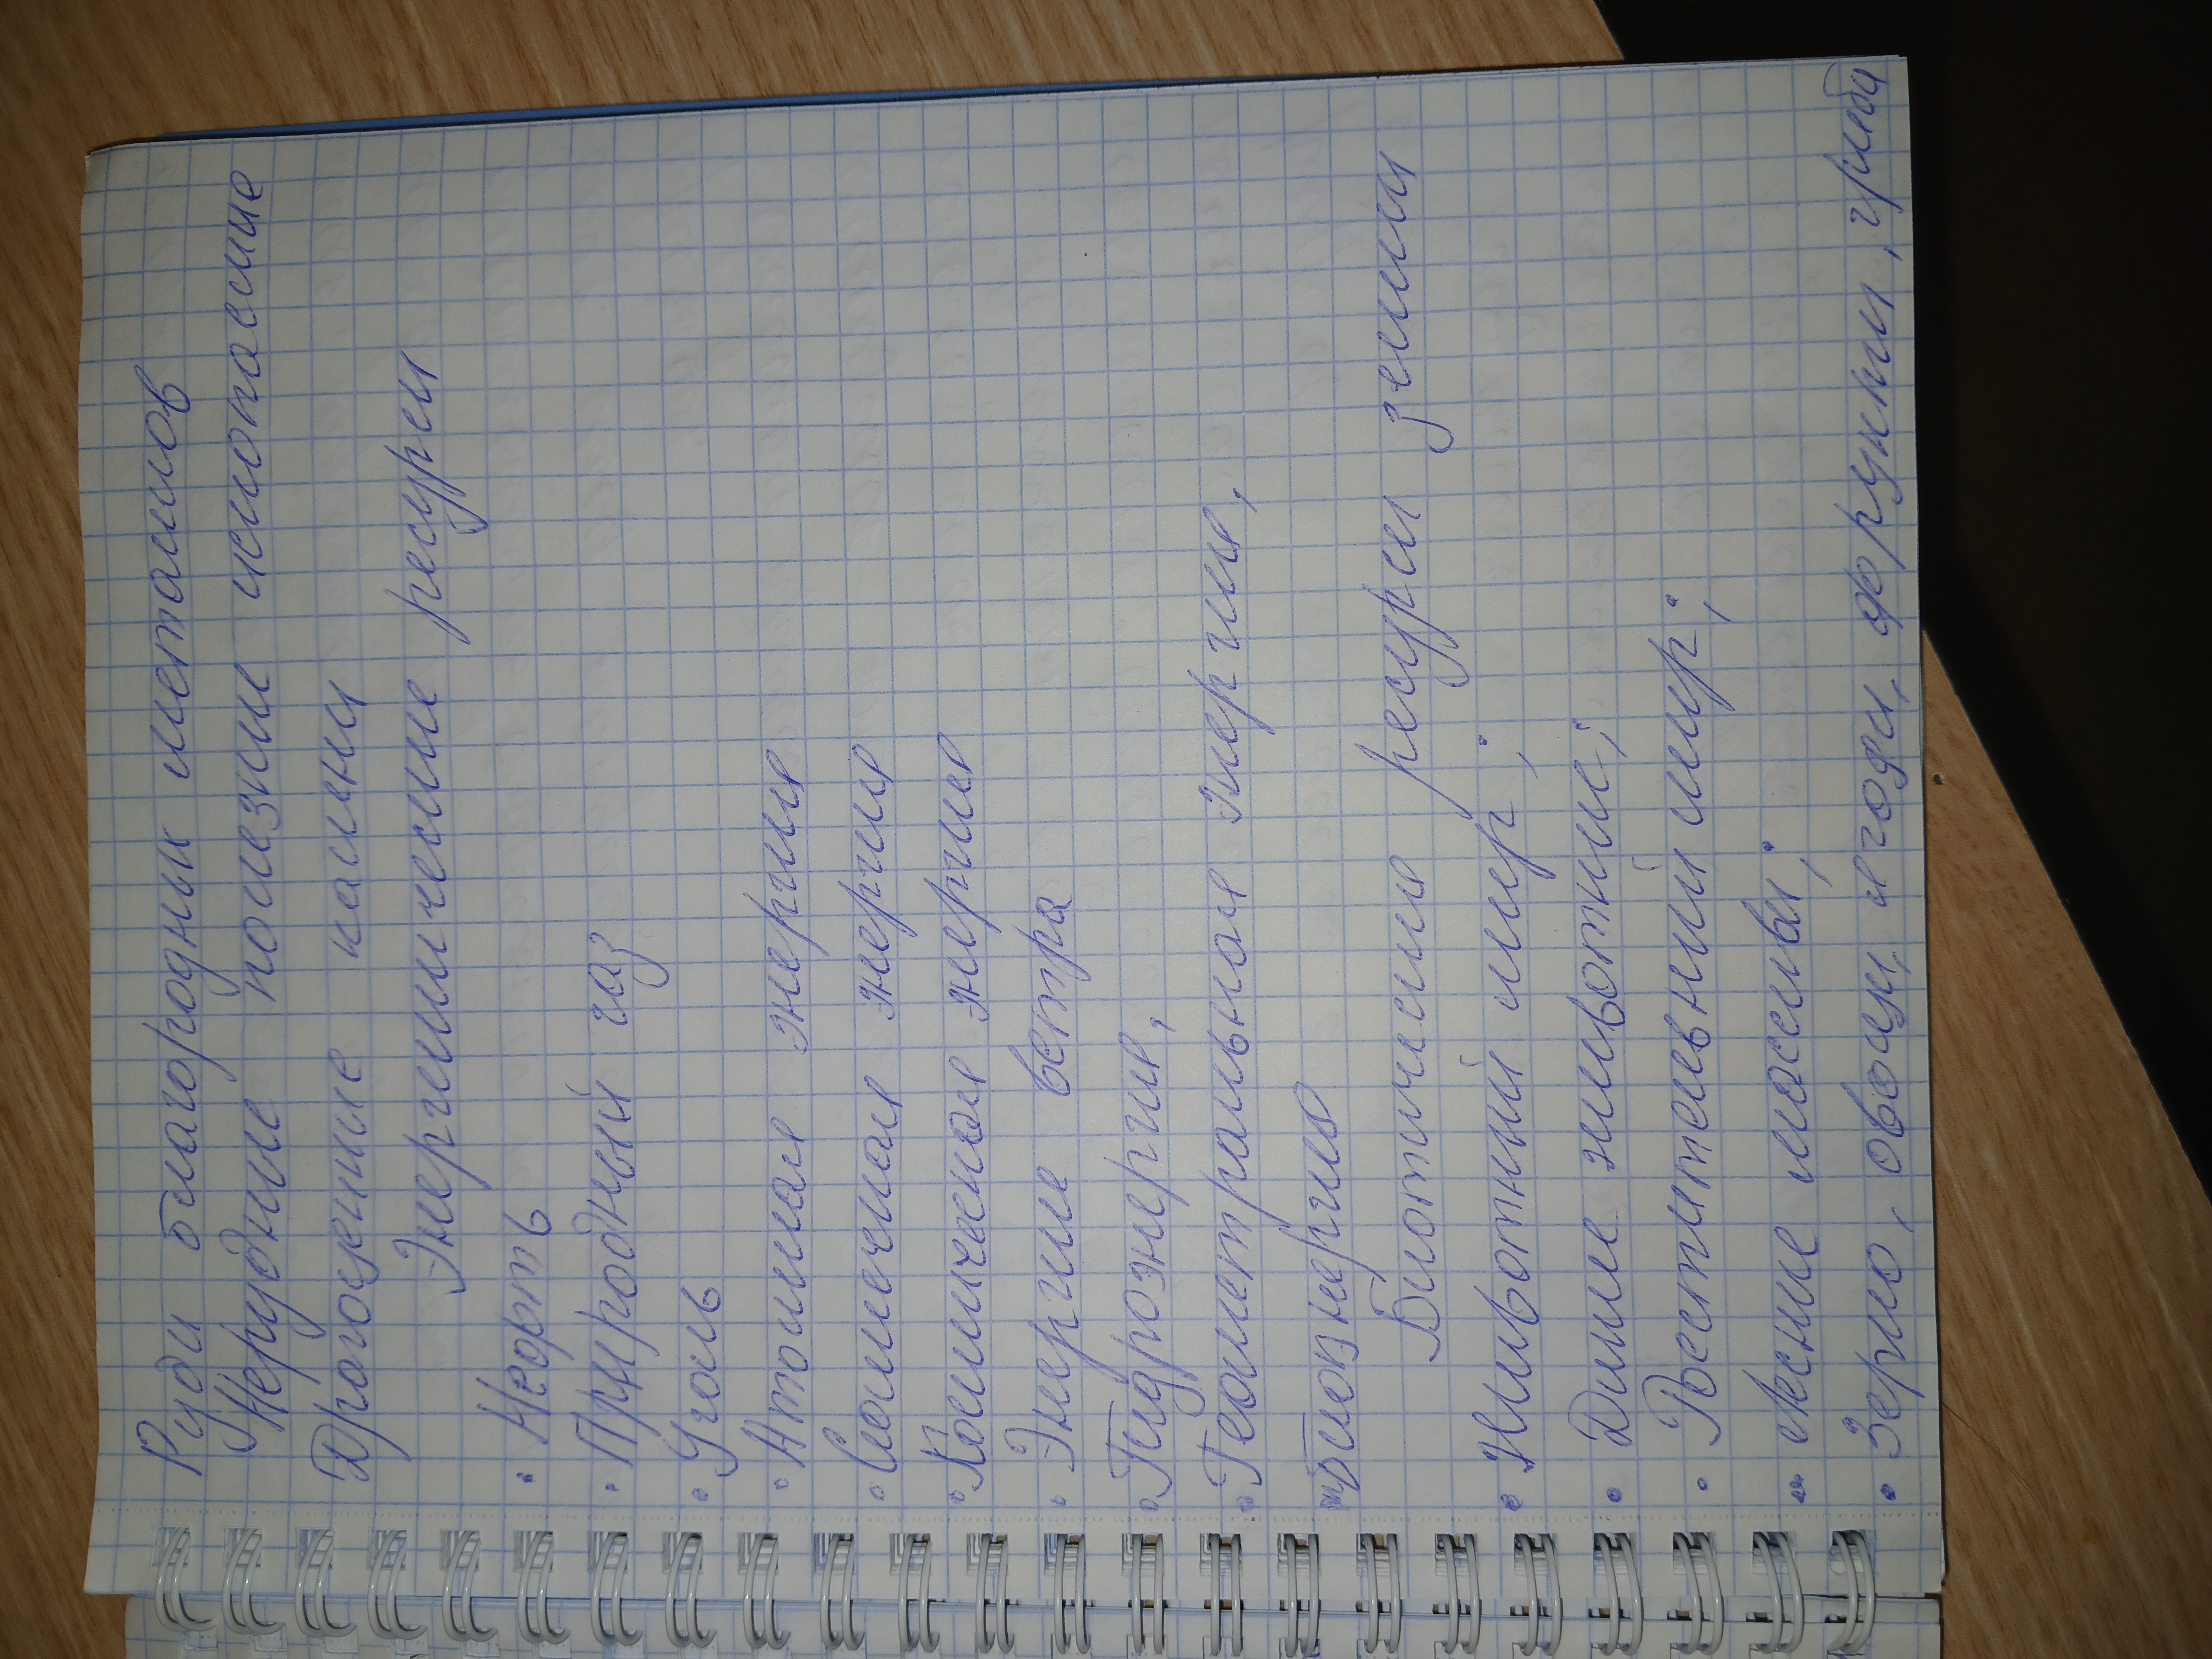 Руды благородных металлов
Нерудные полезные ископаемые
Драгоценные камни
Энергитические ресурсы
• Нефть
• Природный газ
• Уголь
• Атомная энергия
• Солнечная энергия
• Космическая энергия
• Энергия ветра
• Гидроэнергия,
• Геометральная энергия,
биоэнергия
Биотические ресурсы земли
• Животный мир;
• Дикие животные;
• Растительный мир;
• Лесные массивы;
• Зерно, овощи, ягоды, фрукты, грибы